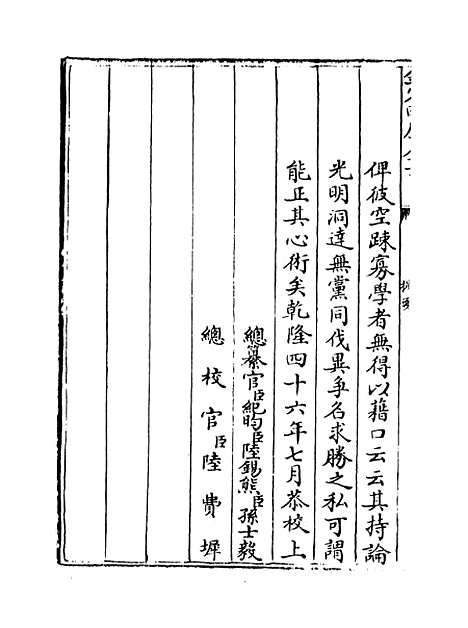 俾彼空踈寡學者無得以藉口云云其持論
光明洞達無黨同伐異爭名求勝之私可謂
能正其心術矣乾隆四十六年七月恭校上
總纂官臣紀昀臣陸錫熊臣孫士毅
總校官臣陸費墀